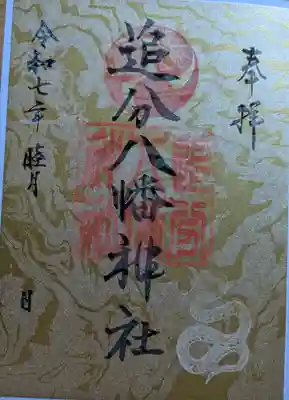 奉拝
追分八幡神社
令和七年 睦月 日